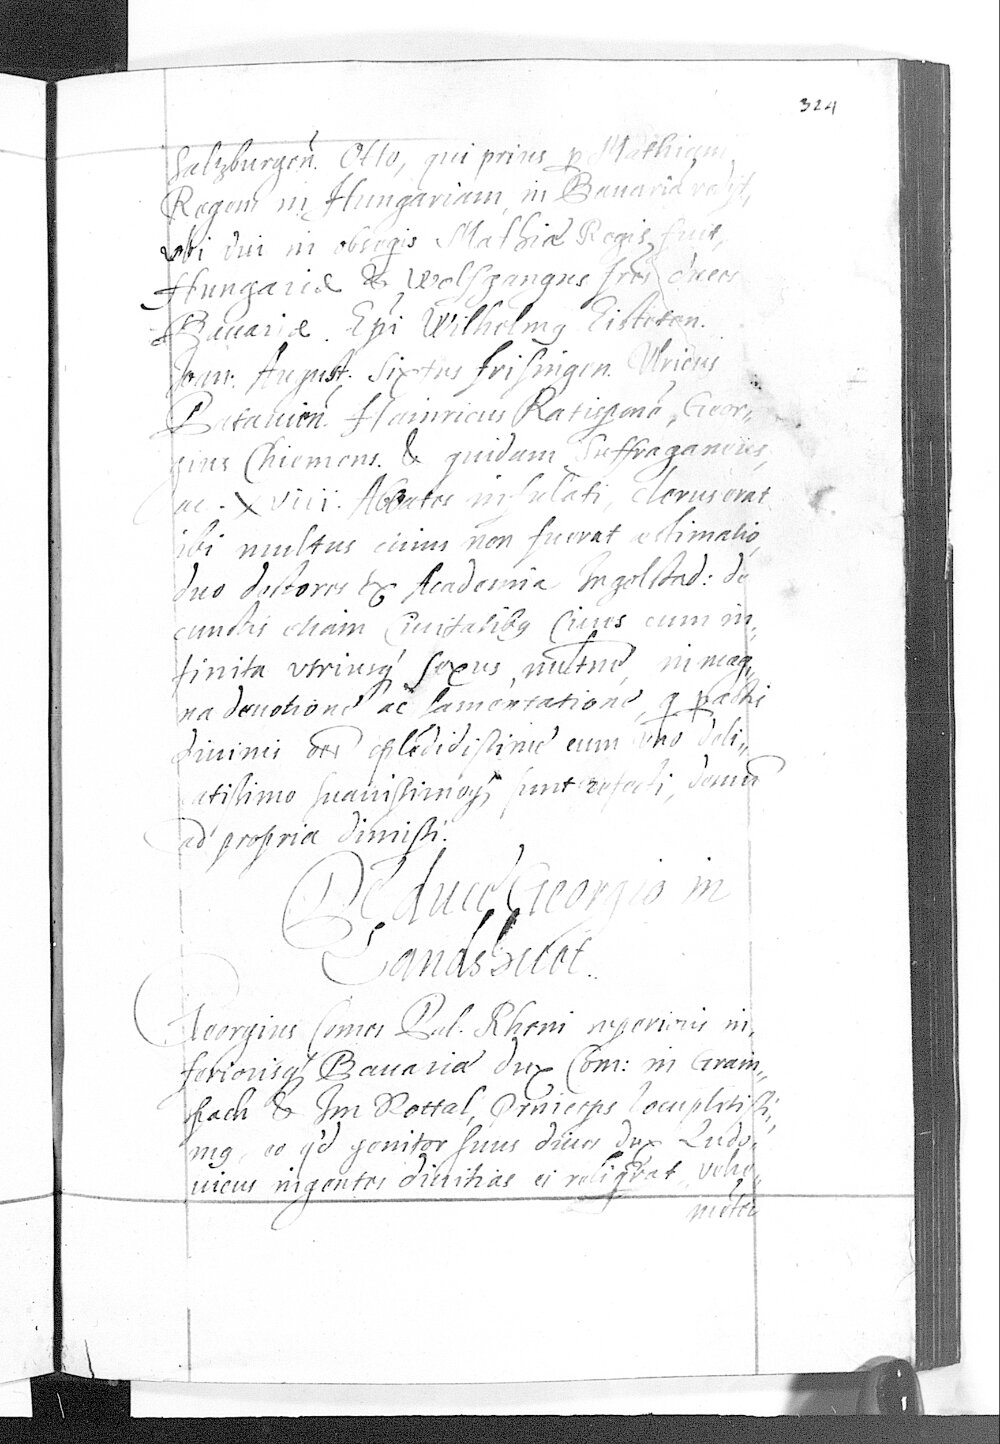 324
Salzburgen̄. Otto, qui prius p Mathiam
Regem in Hungariam, in Bauariā redijt,
vbi diu in obsegis Mathiæ Regis fuit,
Hungariæ & Wolfgangus frēs duces
Bauariæ. Epi Wilhelmg Eisteten.
Joan. August. Sixtus frisingen. Vlricus
Patauien̄. Hainricus Ratisponē, Geor„
gius Chiemens. & quidam Suffraganeus,
ac. XVIII. Abbates infulati, clerus erat
ibi multus cuius non fuerat æstimatio,
duo doctores ex Academia Ingolstad: de
cunctis etiam Ciuitatibg Ciues cum in„
finita vtriusq́ sexus multitudē, in mag„
na deuotione ac lamentatione, q pactis
diuinis oēs splēdidissime cum vino deli„
catissimo suauissimoq́, sunt refecti, demū
ad propria dimissi.
De duce Georgio in
Landshuet.
Georgius Comes Pal. Rheni superioris in„
feriorisq́ Bauariæ dux Com: in Grain„
spach & Im Rottal, Princeps locupletissi„
mg, eo qd genitor suus diues dux Ludo„
uicus ingentes diuitias ei reliqrat, vehe„
mēter